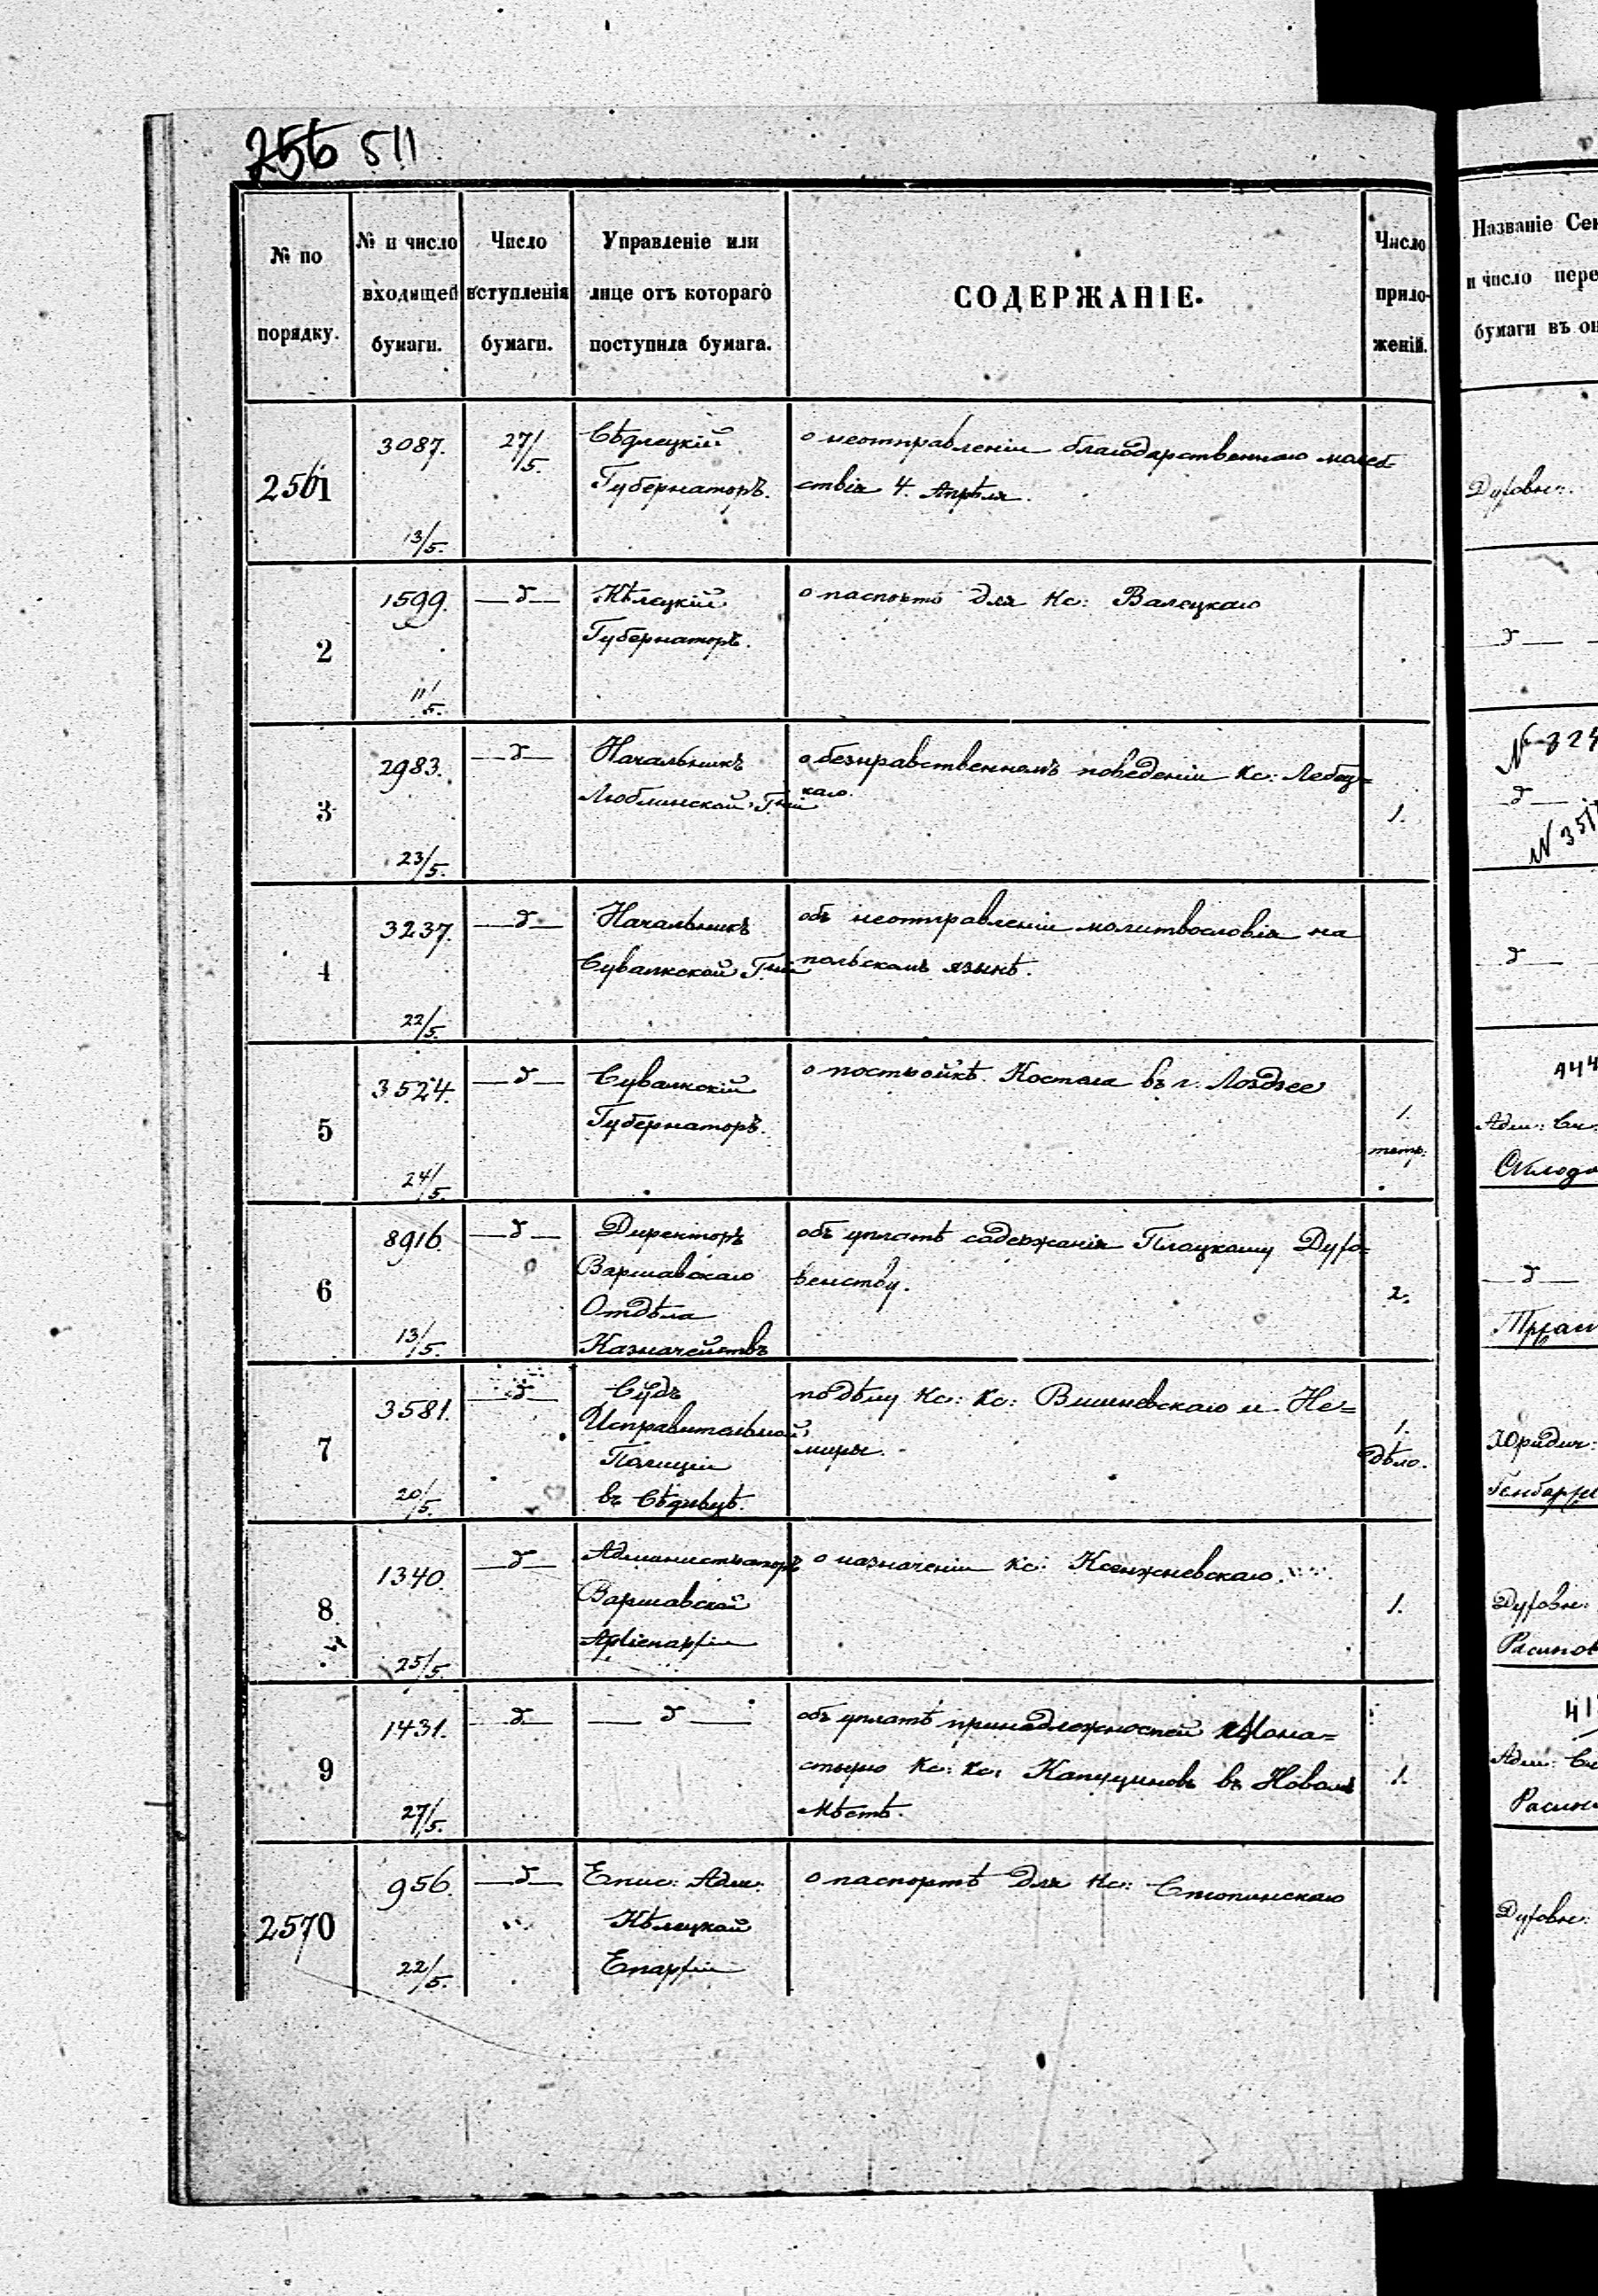 256 511
№ по порядку.
№ и число входящей бумаги.
Число вступленія бумаги.
Управленіе или лице отъ котораго поступила бумага.
СОДЕРЖАНІЕ.
Число приложеній.
2561
3087.
13/5.
27/5.
Сѣдлецкій
Губернаторъ.
о неотправленіи благодарственнаго молеб-
ствія 4. Апрѣля.
2
1599.
11/5.
—д—
Кѣлецкій
Губернаторъ.
о паспортѣ для Кс: Валецкаго
3
2983.
23/5.
—д—
Начальникъ
Люблинской Г–іи
о безнравственномъ поведеніи Кс: Лебец=
каго.
1.
4
3237.
22/5.
—д—
Начальникъ
Сувалкской Г–іи
объ неотправленіи молитвословія на
польскомъ языкѣ.
5
3524.
24/5.
—д—
Сувалкскій
Губернаторъ.
о постройкѣ Костела въ г. Лоздзее
1.
тетр.
6
8916.
13/5.
—д—
Директоръ
Варшавскаго
Отдѣла
Казначействъ
объ уплатѣ содержанія Плоцкому Духо=
венству.
2.
7
3581.
20/5.
—д—
Судъ
Исправительной
Полиціи
въ Сѣдльцѣ.
по дѣлу Кс: Кс: Вишневскаго и Не=
миры.
1.
дѣло.
8
1340.
25/5.
—д—
Администраторъ
Варшавской
Архіепархіи
о назначеніи Кс: Ксенжневскаго.
1.
9
1431.
27/5.
—д—
— д —
объ уплатѣ принадлежностей Мона=
стырю Кс: Кс: Капуциновъ въ Новомъ
Мѣстѣ.
1.
2570
956.
22/5.
—д—
Епис: Адм:
Кѣлецкой
Епархіи
о паспортѣ для Кс: Стопинскаго
Названіе
и число
бумаги въ
Духовн:
—д—
—д—
—д—
Адм:
—д—
Юридич:
Духовн:
Адм:
Духовн: